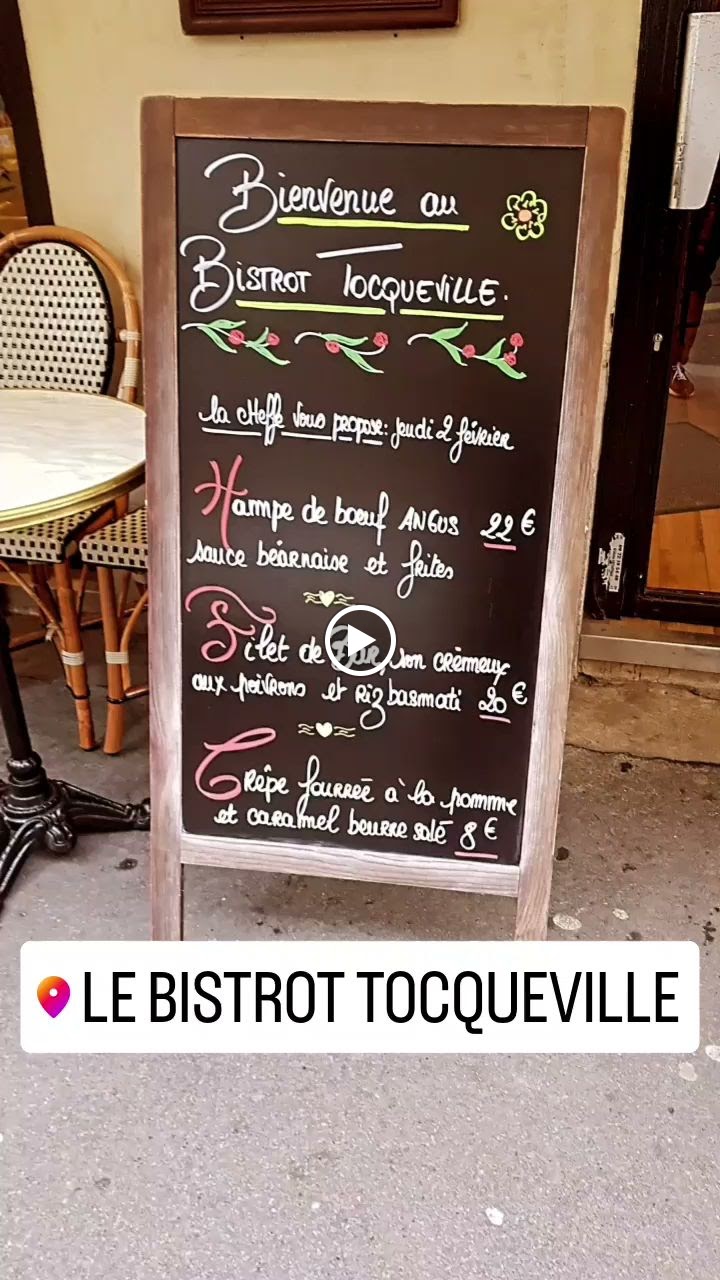 Bienvenue au
Bistrot Tocqueville.
la cheffe vous propose: jeudi 2 février
Hampe de bœuf ANGUS 22 €
sauce béarnaise et frites
Filet de Bar, son crèmeux
aux poivrons et Riz basmati 20 €
Crêpe fourreé à la pomme
et caramel beurre salé 8 €
LE BISTROT TOCQUEVILLE